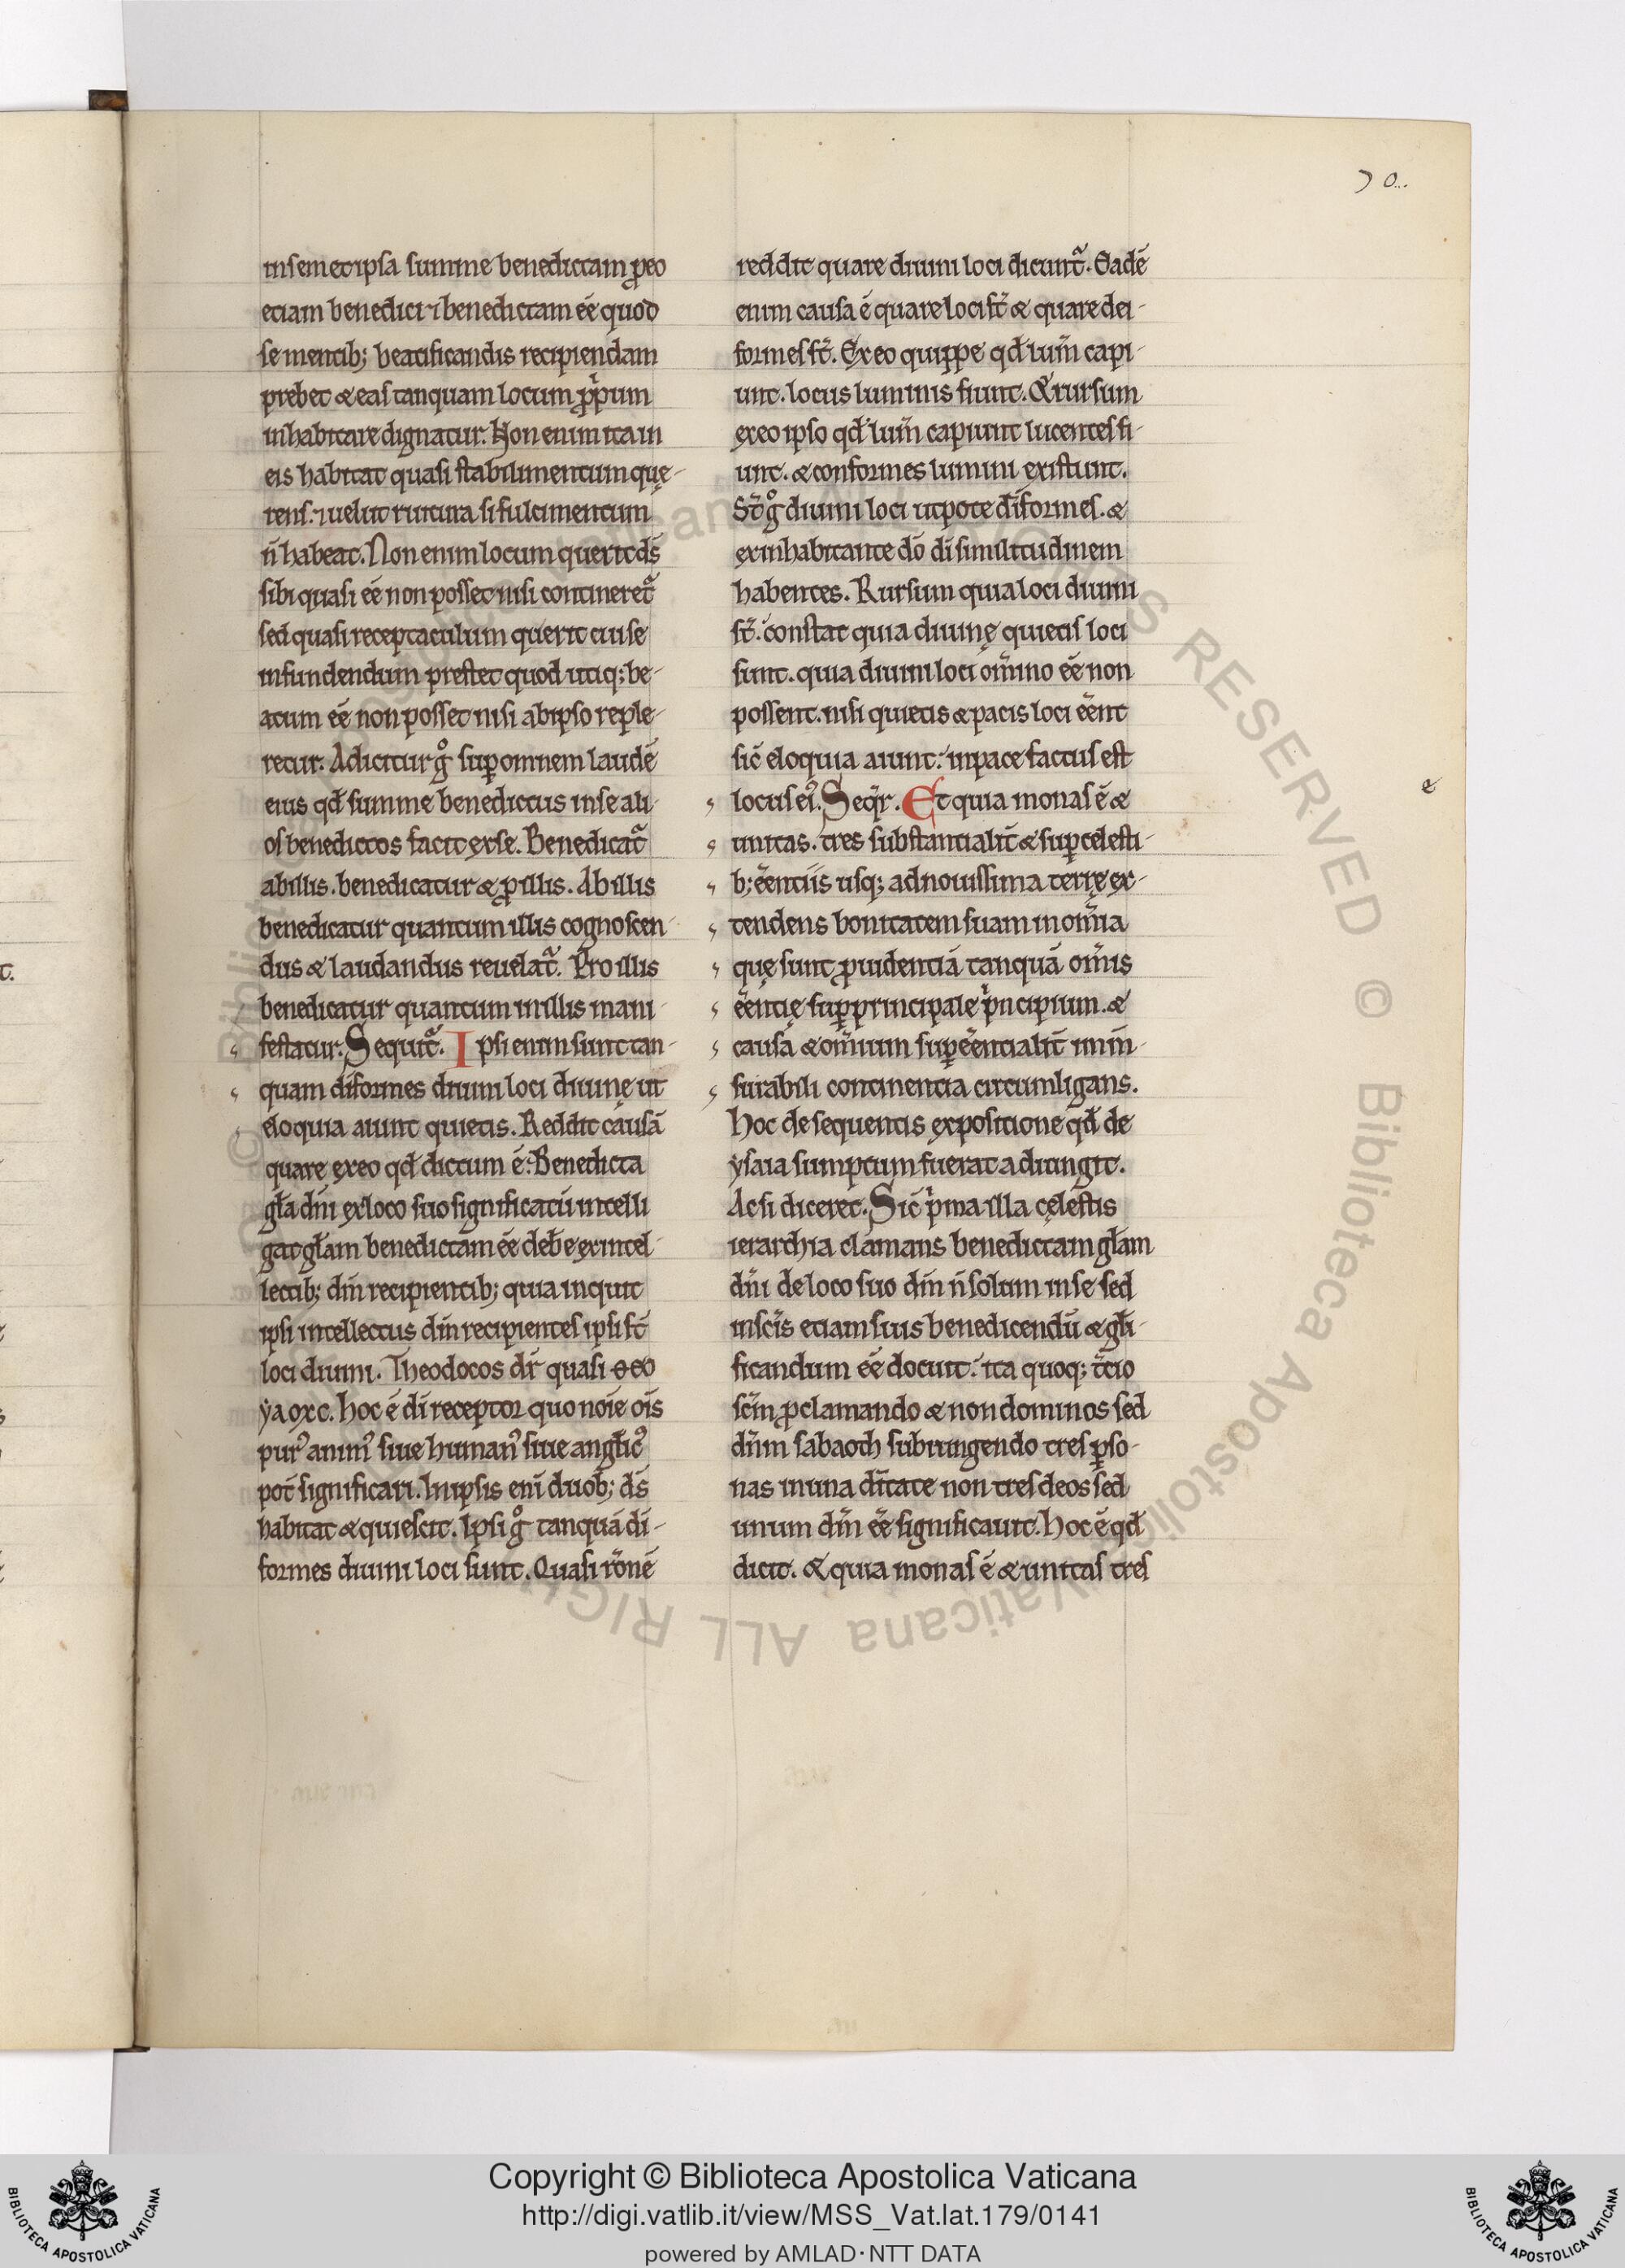 70.
insemetipsa summe benedictam ꝓeo
etiam benedici ⁊ benedictam eē quod
se mentib; beatificandis recipiendam
prebet & eas tanquam locum ꝓpͥum
inhabitare dignatur. Non enim ita in
eis habitat quasi stabilimentum quę-
rens. ⁊ uelut ruitura si fulcimentum
n̄ habeat. Non enim locum querit ds̄
sibi quasi eē non posset nisi contineret᷑
sed quasi receptaculum querit cui se
infundendum prestet quod utiq; be-
atum eē non posset nisi ab ipso reple-
retur. Adicitur gͦ suꝑ omnem laudē
eius qđ summe benedictus in se ali-
os benedictos facit ex se. Benedicat᷑
ab illis. benedicatur & ꝓ illis. Ab illis
benedicatur quantum illis cognoscen-
dus & laudandus reuelat᷑. Pro illis
benedicatur quantum in illis mani-
festatur. Sequit᷑. Ipsi enim sunt tan-
quam dīformes diuini loci diuinę ut
eloquia aiunt quietis. Reddit causā
quare ex eo qđ dictum ē: Benedicta
gła dn̄i ex loco suo significatiū intelli
gat głam benedictam eē debere ex intel-
lectib; dm̄ recipientib; quia inquit
ipsi intellectus dm̄ recipientes ipsi st̄
loci diuini. Theodocos dr̄ quasi θeo
ẏaoxc. hoc ē dī receptor quo noīe oīs
purꝰ animꝰ siue humanꝰ siue angłicꝰ
pot̄ significari. In ipsis enī duob; ds̄
habitat & quiescit. Ipsi gͦ tanquā dī-
formes diuini loci sunt. Quasi rōnē
reddit quare diuini loci dicunt᷑. Eadē
enim causa ē quare loci st̄ & quare dei-
formes st̄. Ex eo quippe qđ lum̄ capi-
unt. locus luminis fiunt. & rursum
ex eo ipso qđ lum̄ capiunt lucentes fi-
unt. & conformes lumini existunt.
St̄ gͦ diuini loci utpote dīformes. &
ex inhabitante dō dī similitudinem
habentes. Rursum quia loci diuini
st̄. constat quia diuinę quietis loci
sunt. quia diuini loci om̄ino eē non
possent. nisi quietis & pacis loci eēnt
sic̄ eloquia aiunt: in pace factus est
locus eiꝰ. Seqr̄. Et quia monas ē &
unitas. tres substantialit̄ & suꝑcelesti-
b; eēntiis usq; ad nouissima terrę ex-
tendens bonitatem suam in om̄ia
quę sunt ꝓuidentiā tanquā om̄is
eēntię suꝑprincipale pͥncipium. &
causa & om̄ium suꝑeēntialit̄ inm̄-
surabili continentia circumligans.
Hoc de sequentis expositione qđ de
ẏsaia sumptum fuerat adiungit.
Acsi diceret. Sic̄ pͥma illa cęlestis
ierarchia clamans benedictam głam
dn̄i de loco suo dm̄ n̄ solum in se sed
in sc̄is etiam suis benedicendū & głi-
ficandum eē docuit: ita quoq; t̄cio
sc̄m ꝓclamando & non dominos sed
dn̄m sabaoth subiungendo tres ꝑso-
nas in una dītate non tres deos sed
unum dm̄ eē significauit. Hoc ē qđ
dicit. & quia monas ē & unitas tres
e
Copyright © Biblioteca Apostolica Vaticana
http://digi.vatlib.it/view/MSS_Vat.lat.179/0141
powered by AMLAD·NTT DATA
BIBLIOTECA APOSTOLICA VATICANA
BIBLIOTECA APOSTOLICA VATICANA